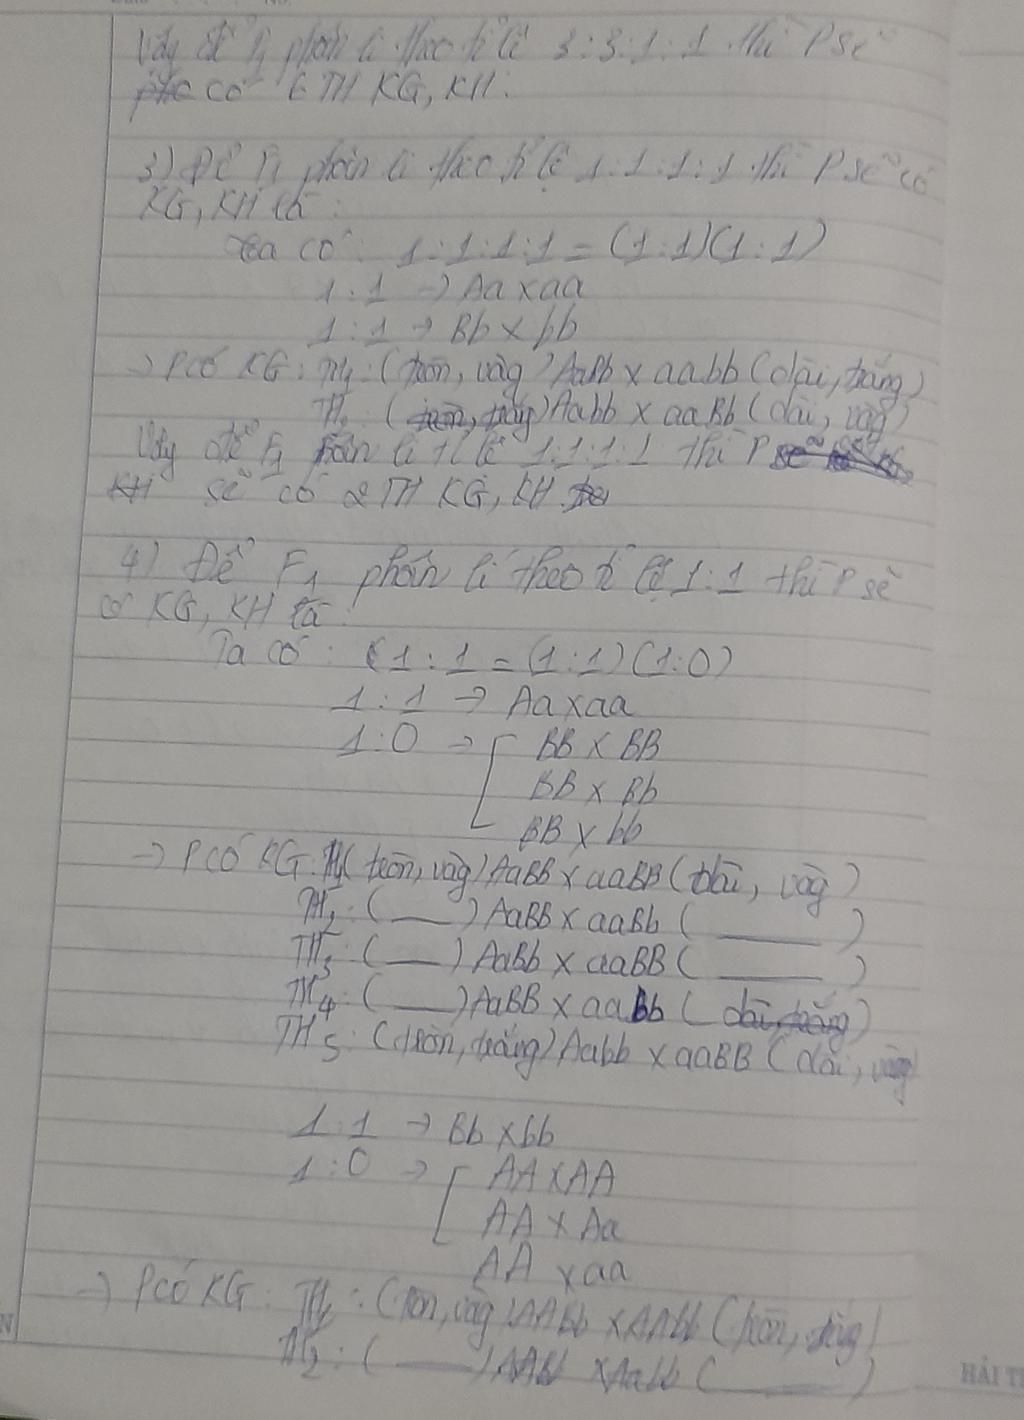 Vậy để F1 phân li theo tỉ lệ 3:3:1:1 thì P sẽ
có 6 TH KG, KH.
3) Để F1 phân li theo tỉ lệ 1:1:1:1 thì P sẽ có
KG, KH là:
Ta có: 1:1:1:1 = (1:1)(1:1)
1:1 → Aa x aa
1:1 → Bb x bb
→ P có KG: TH1: (tròn, vàg) AaBb x aabb (dài, trắng)
TH2: (tròn, trắng) Aabb x aaBb (dài, vàg)
Vậy để F1 phân li tỉ lệ 1:1:1:1 thì P
sẽ có 2 TH KG, KH.
4) Để F1 phân li theo tỉ lệ 1:1 thì P sẽ
có KG, KH là:
Ta có: (1:1 = (1:1)(1:0)
1:1 → Aa x aa
1:0 → [ BB x BB
BB x Bb
BB x bb
→ P có KG: TH1 (tròn, vàg) AaBB x aaBB (dài, vàg)
TH2: ( ___ ) AaBB x aaBb ( ___ )
TH3: ( ___ ) AaBb x aaBB ( ___ )
TH4: ( ___ ) AaBB x aabb ( dài, trắng)
TH5: (tròn, trắng) Aabb x aaBB (dài, vàg)
1:1 → Bb x bb
1:0 → [ AA x AA
AA x Aa
AA x aa
→ P có KG: TH1: (tròn, vàg) AABb x AAbb (tròn, trắng)
TH2: ( ___ ) AABb x Aabb ( ___ )
HẢI T